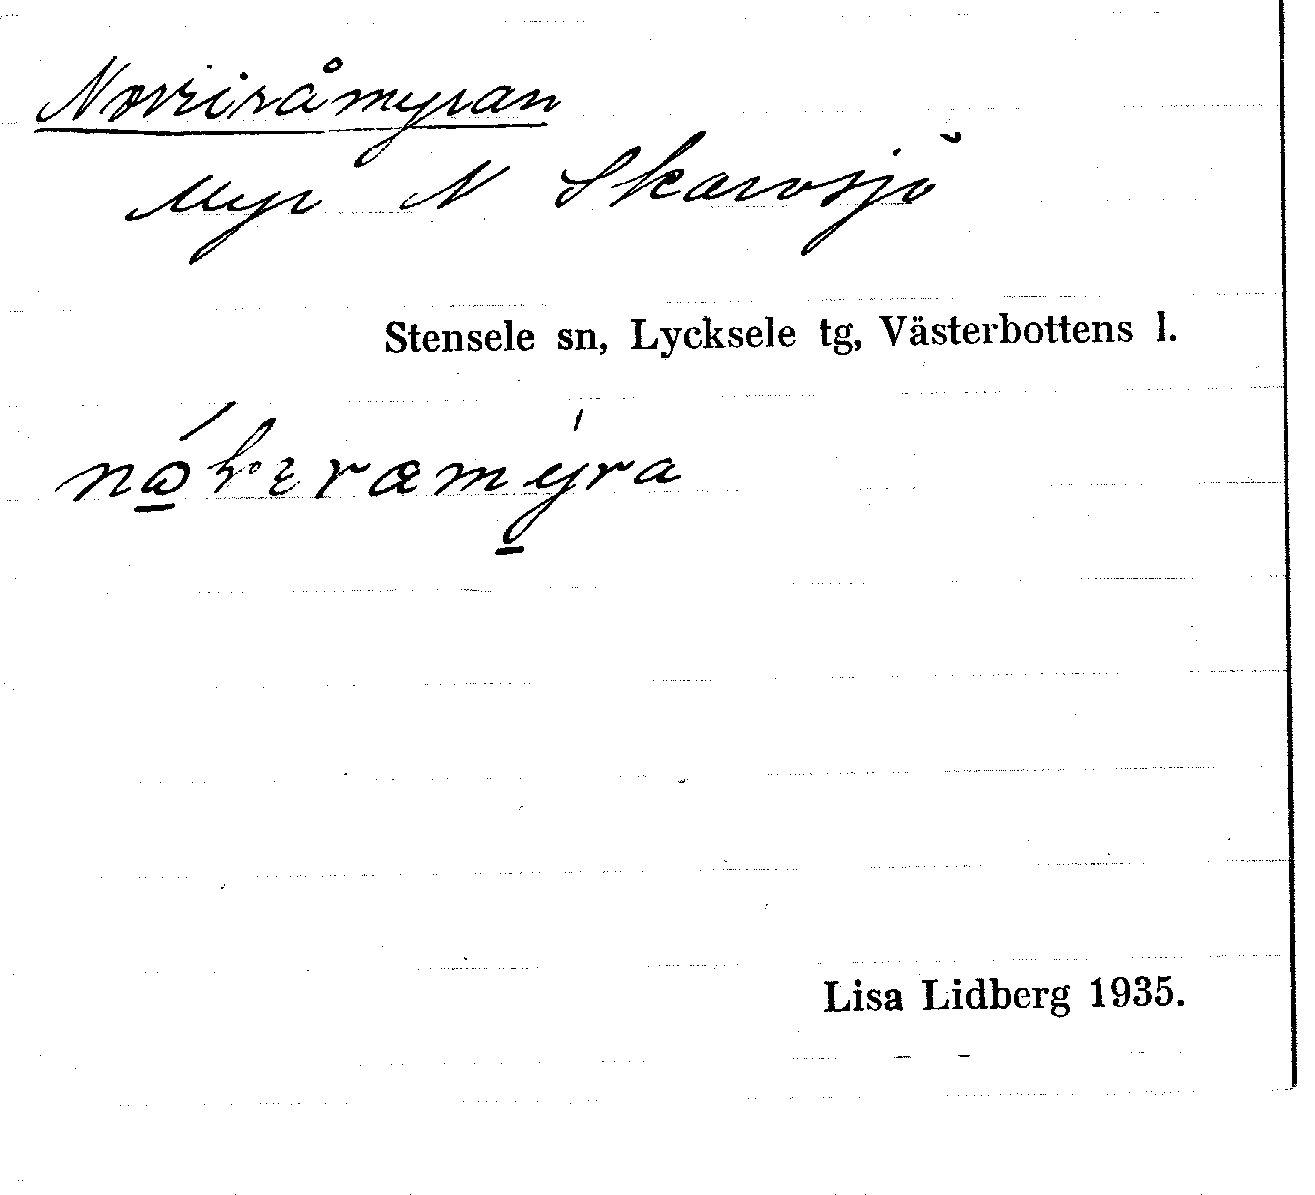 Norriråmyran
Myr N Skarvsjö
Stensele sn, Lycksele tg, Västerbottens l.
Lisa Lidberg 1935.